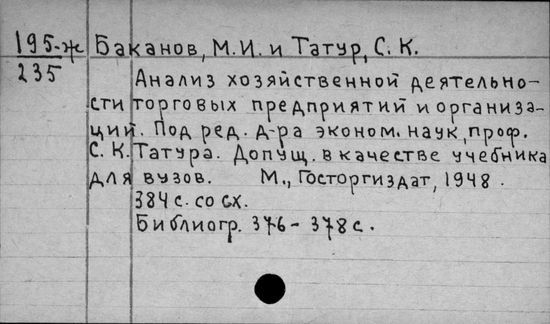 195-ж Баканов, М.И. и Татур, С. К.
235
Анализ хозяйственной деятельно-
сти торговых предприятий и организа-
ций. Под ред. д-ра эконом. наук, проф.
С. К. Татура. Допущ. в качестве учебника
для вузов. М., Госторгиздат, 1948.
384 с. со сх.
Библиогр. 376-378 с.